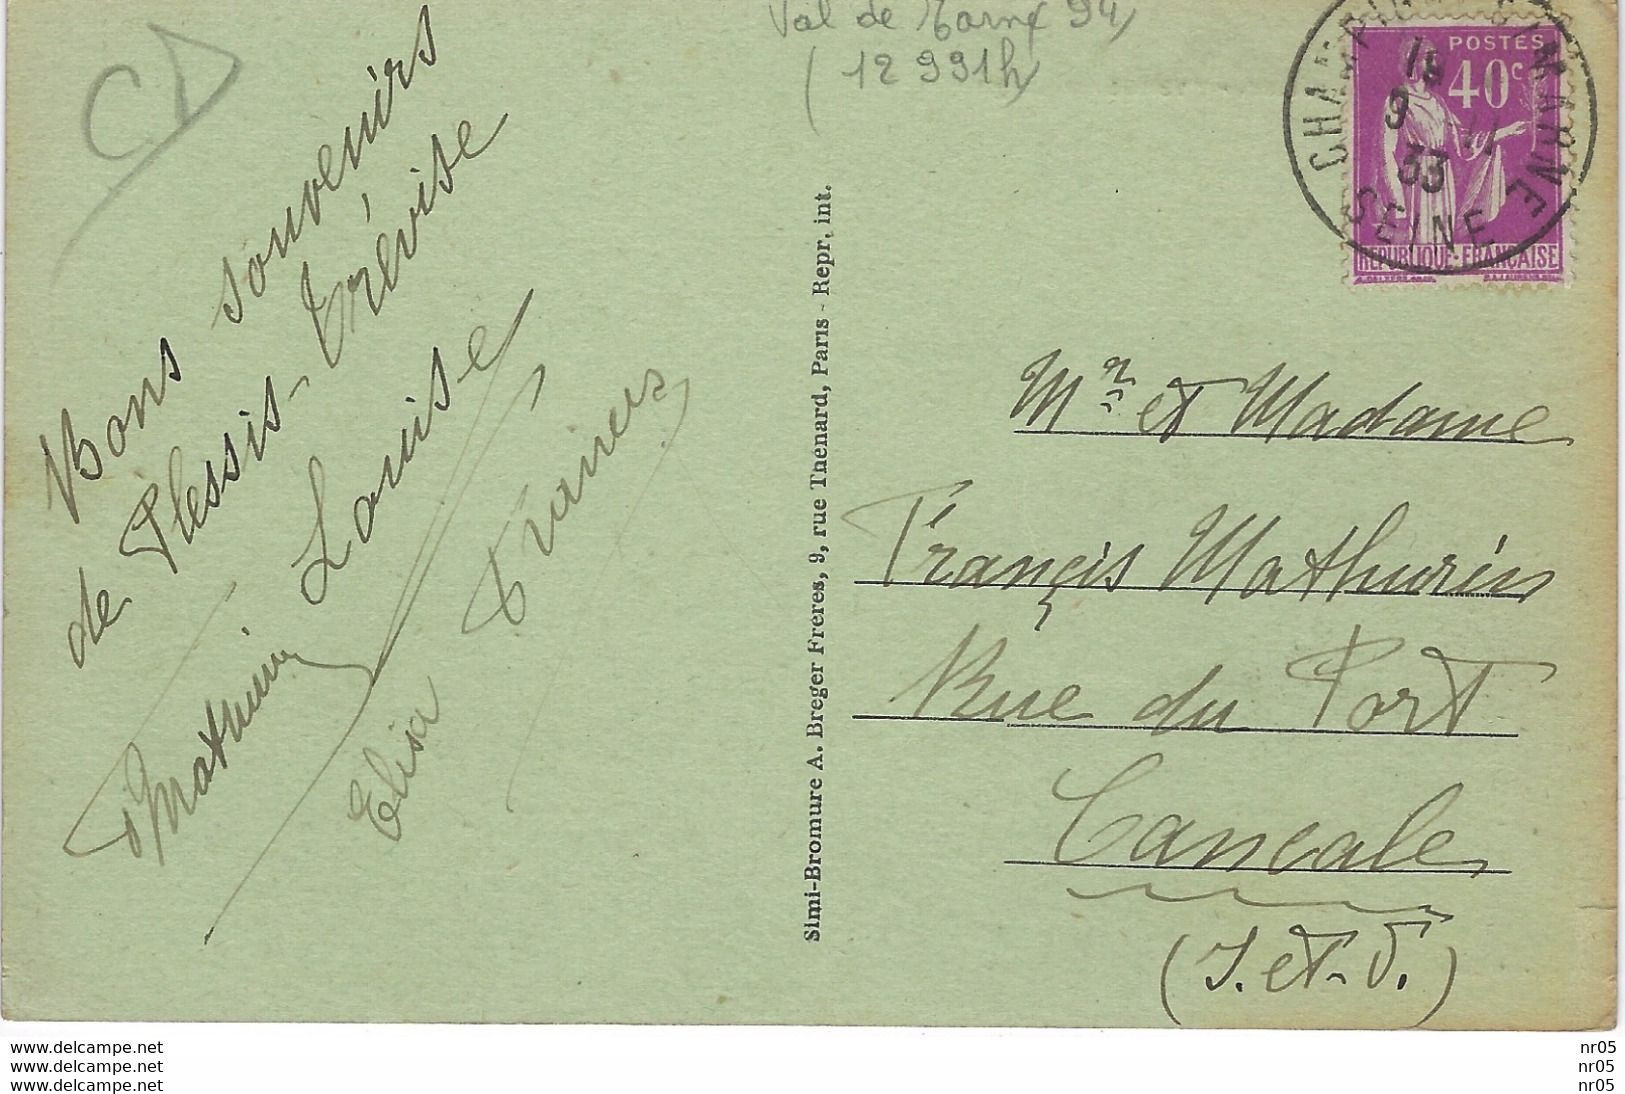 CD
Bons souvenirs
de Plessis-Trévise
Mathurin Louise
Elisa
Val de Marne 94
(12 991h)
Simi-Bromure A. Breger Frères, 9, rue Thénard, Paris - Repr. int.
POSTES
40c
REPUBLIQUE·FRANÇAISE
MARNE
9 11
33
SEINE
Mr et Madame
Françis Mathurin
Rue du Port
Cancale
(I. et-V.)
www.delcampe.net nr05
www.delcampe.net nr05
www.delcampe.net nr05